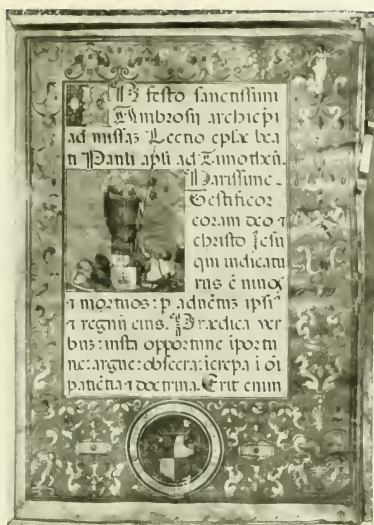 In festo sanctissimi
Ambrosij archiepi
ad missaz Lectio eplæ bea
ti Pauli apli ad Timotheū.
Karissime.
Testificor
coram deo ⁊
christo Jesu
qui iudicatu
rus ē viuos
⁊ mortuos: p aduētuz ipsi⁹
⁊ regnū eius. Prædica ver
buz: insta opportune īportu
ne: argue: obsecra: īcrepa ī oī
patiētia ⁊ doctrina. Erit enim